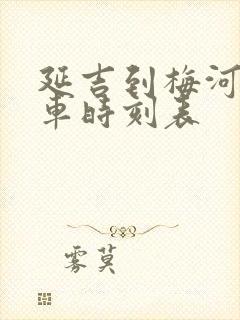 延吉到梅河
車時刻表
雾莫